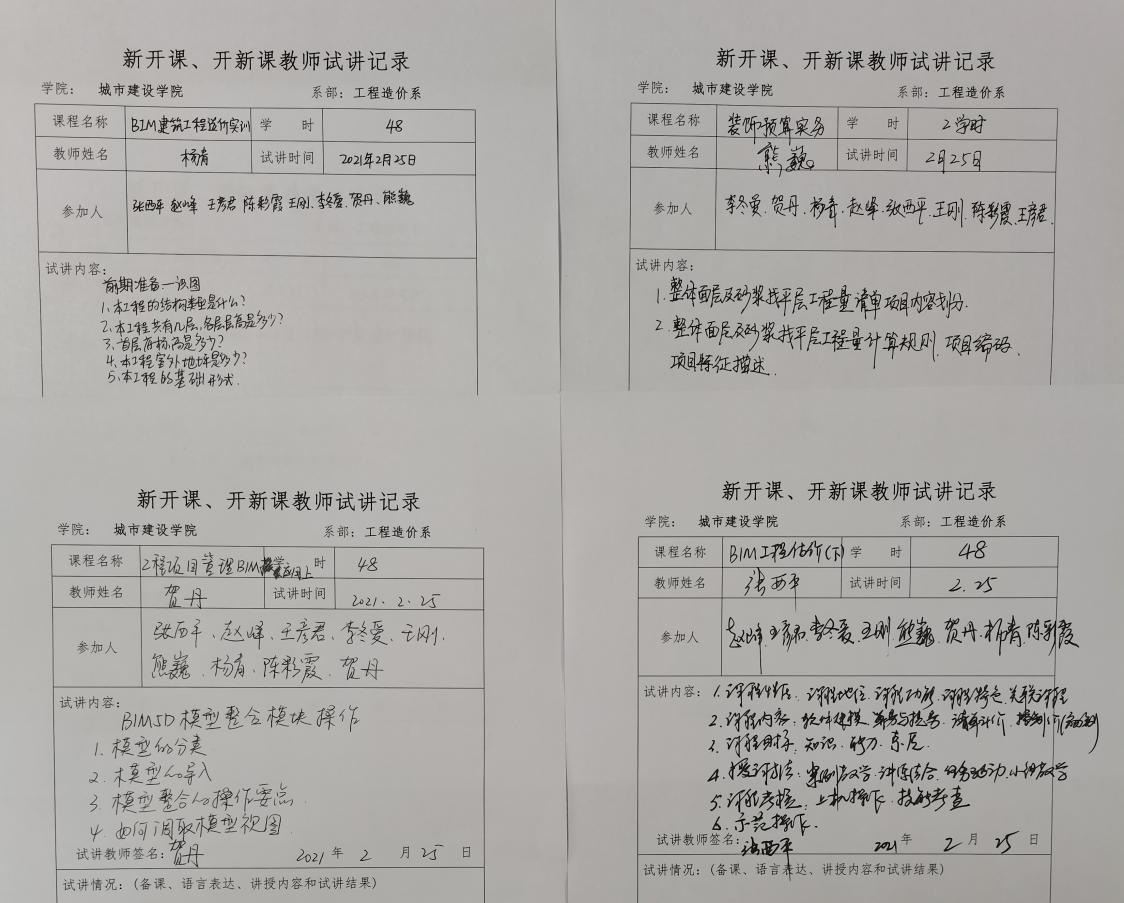 新开课、开新课教师试讲记录
学院: 城市建设学院 系部: 工程造价系
课程名称 BIM建筑工程造价实训 学 时 48
教师姓名 杨青 试讲时间 2021年2月25日
参加人 张西平 赵峰 王彦君 陈彩霞 王刚、李冬爱、贺丹、熊巍
试讲内容:
前期准备—识图
1、本工程的结构类型是什么?
2、本工程共有几层,各层层高是多少?
3、首层标高是多少?
4、本工程室外地坪是多少?
5、本工程的基础形式.
新开课、开新课教师试讲记录
学院: 城市建设学院 系部: 工程造价系
课程名称 装饰预算实务 学 时 2学时
教师姓名 熊巍 试讲时间 2月25日
参加人 李冬爱、贺丹、杨青、赵峰、张西平、王刚、陈彩霞、王彦君.
试讲内容:
1. 整体面层及砂浆找平层工程量清单项目内容划分.
2. 整体面层及砂浆找平层工程量计算规则、项目编码、
项目特征描述.
新开课、开新课教师试讲记录
学院: 城市建设学院 系部: 工程造价系
课程名称 工程项目管理BIM 学 时 48
教师姓名 贺丹 试讲时间 2021.2.25
参加人 张西平、赵峰、王彦君、李冬爱、王刚、
熊巍、杨青、陈彩霞、贺丹
试讲内容:
BIM5D模型整合模块操作
1. 模型的分类
2. 模型的导入
3. 模型整合的操作要点.
4. 如何调取模型视图.
试讲教师签名: 贺丹 2021 年 2 月 25 日
试讲情况:(备课、语言表达、讲授内容和试讲结果)
新开课、开新课教师试讲记录
学院: 城市建设学院 系部: 工程造价系
课程名称 BIM工程估价(下) 学 时 48
教师姓名 张西平 试讲时间 2.25
参加人 赵峰 王彦君、李冬爱、王刚、熊巍、贺丹、杨青、陈彩霞
试讲内容: 1. 课程地位、课程功能、课程特色、关联课程
2. 课程内容: 软件建模、清单计价、
3. 课程目标: 知识、能力、素质.
4. 授课方法: 案例教学、讲练结合、任务驱动、小组教学
5. 课程考核: 上机操作、技能考查
6. 示范操作.
试讲教师签名: 张西平 2021 年 2 月 25 日
试讲情况:(备课、语言表达、讲授内容和试讲结果)